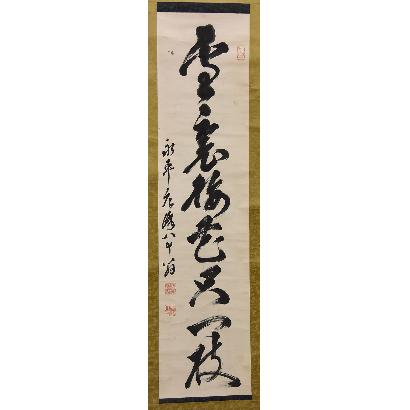 雪裏梅花只一枝
永平元峰八十翁